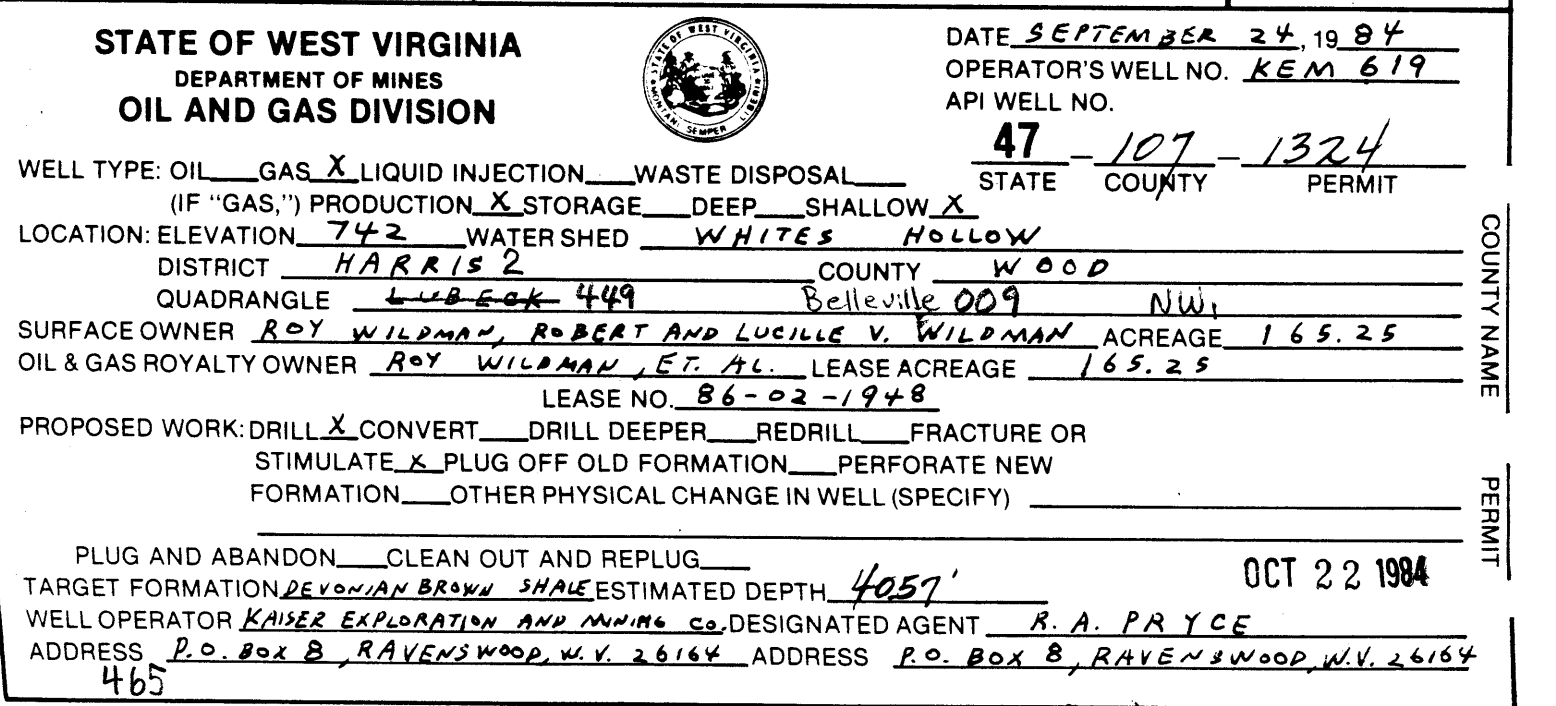 STATE OF WEST VIRGINIA
DEPARTMENT OF MINES
OIL AND GAS DIVISION
STATE OF WEST VIRGINIA
MONTANI SEMPER LIBERI
DATE SEPTEMBER 24, 1984
OPERATOR'S WELL NO. KEM 619
API WELL NO.
47 - 107 - 1324
STATE COUNTY PERMIT
WELL TYPE: OIL___GAS X LIQUID INJECTION___WASTE DISPOSAL___
(IF "GAS,") PRODUCTION X STORAGE___DEEP___SHALLOW X
LOCATION: ELEVATION 742 WATER SHED WHITES HOLLOW
DISTRICT HARRIS 2 COUNTY WOOD
QUADRANGLE LUBECK 449 Belleville 009 NW
SURFACE OWNER ROY WILDMAN, ROBERT AND LUCILLE V. WILDMAN ACREAGE 165.25
OIL & GAS ROYALTY OWNER ROY WILDMAN, ET. AL. LEASE ACREAGE 165.25
LEASE NO. 86-02-1948
PROPOSED WORK: DRILL X CONVERT___DRILL DEEPER___REDRILL___FRACTURE OR
STIMULATE X PLUG OFF OLD FORMATION___PERFORATE NEW
FORMATION___OTHER PHYSICAL CHANGE IN WELL (SPECIFY)
PLUG AND ABANDON___CLEAN OUT AND REPLUG___
OCT 22 1984
TARGET FORMATION DEVONIAN BROWN SHALE ESTIMATED DEPTH 4057'
WELL OPERATOR KAISER EXPLORATION AND MINING CO. DESIGNATED AGENT R. A. PRYCE
ADDRESS P.O. BOX 8, RAVENSWOOD, W.V. 26164 ADDRESS P.O. BOX 8, RAVENSWOOD, W.V. 26164
465
COUNTY NAME
PERMIT